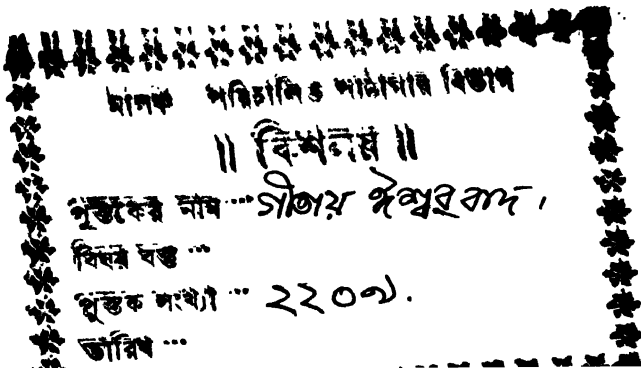 মালঞ্চ পরিচালিত পাঠাগার বিভাগ
॥ বিশনয় ॥
পুস্তকের নাম ... গীতায় ঈশ্বরবাদ।
বিষয় বস্তু ...
পুস্তক সংখ্যা ... ২২০৭.
তারিখ ...